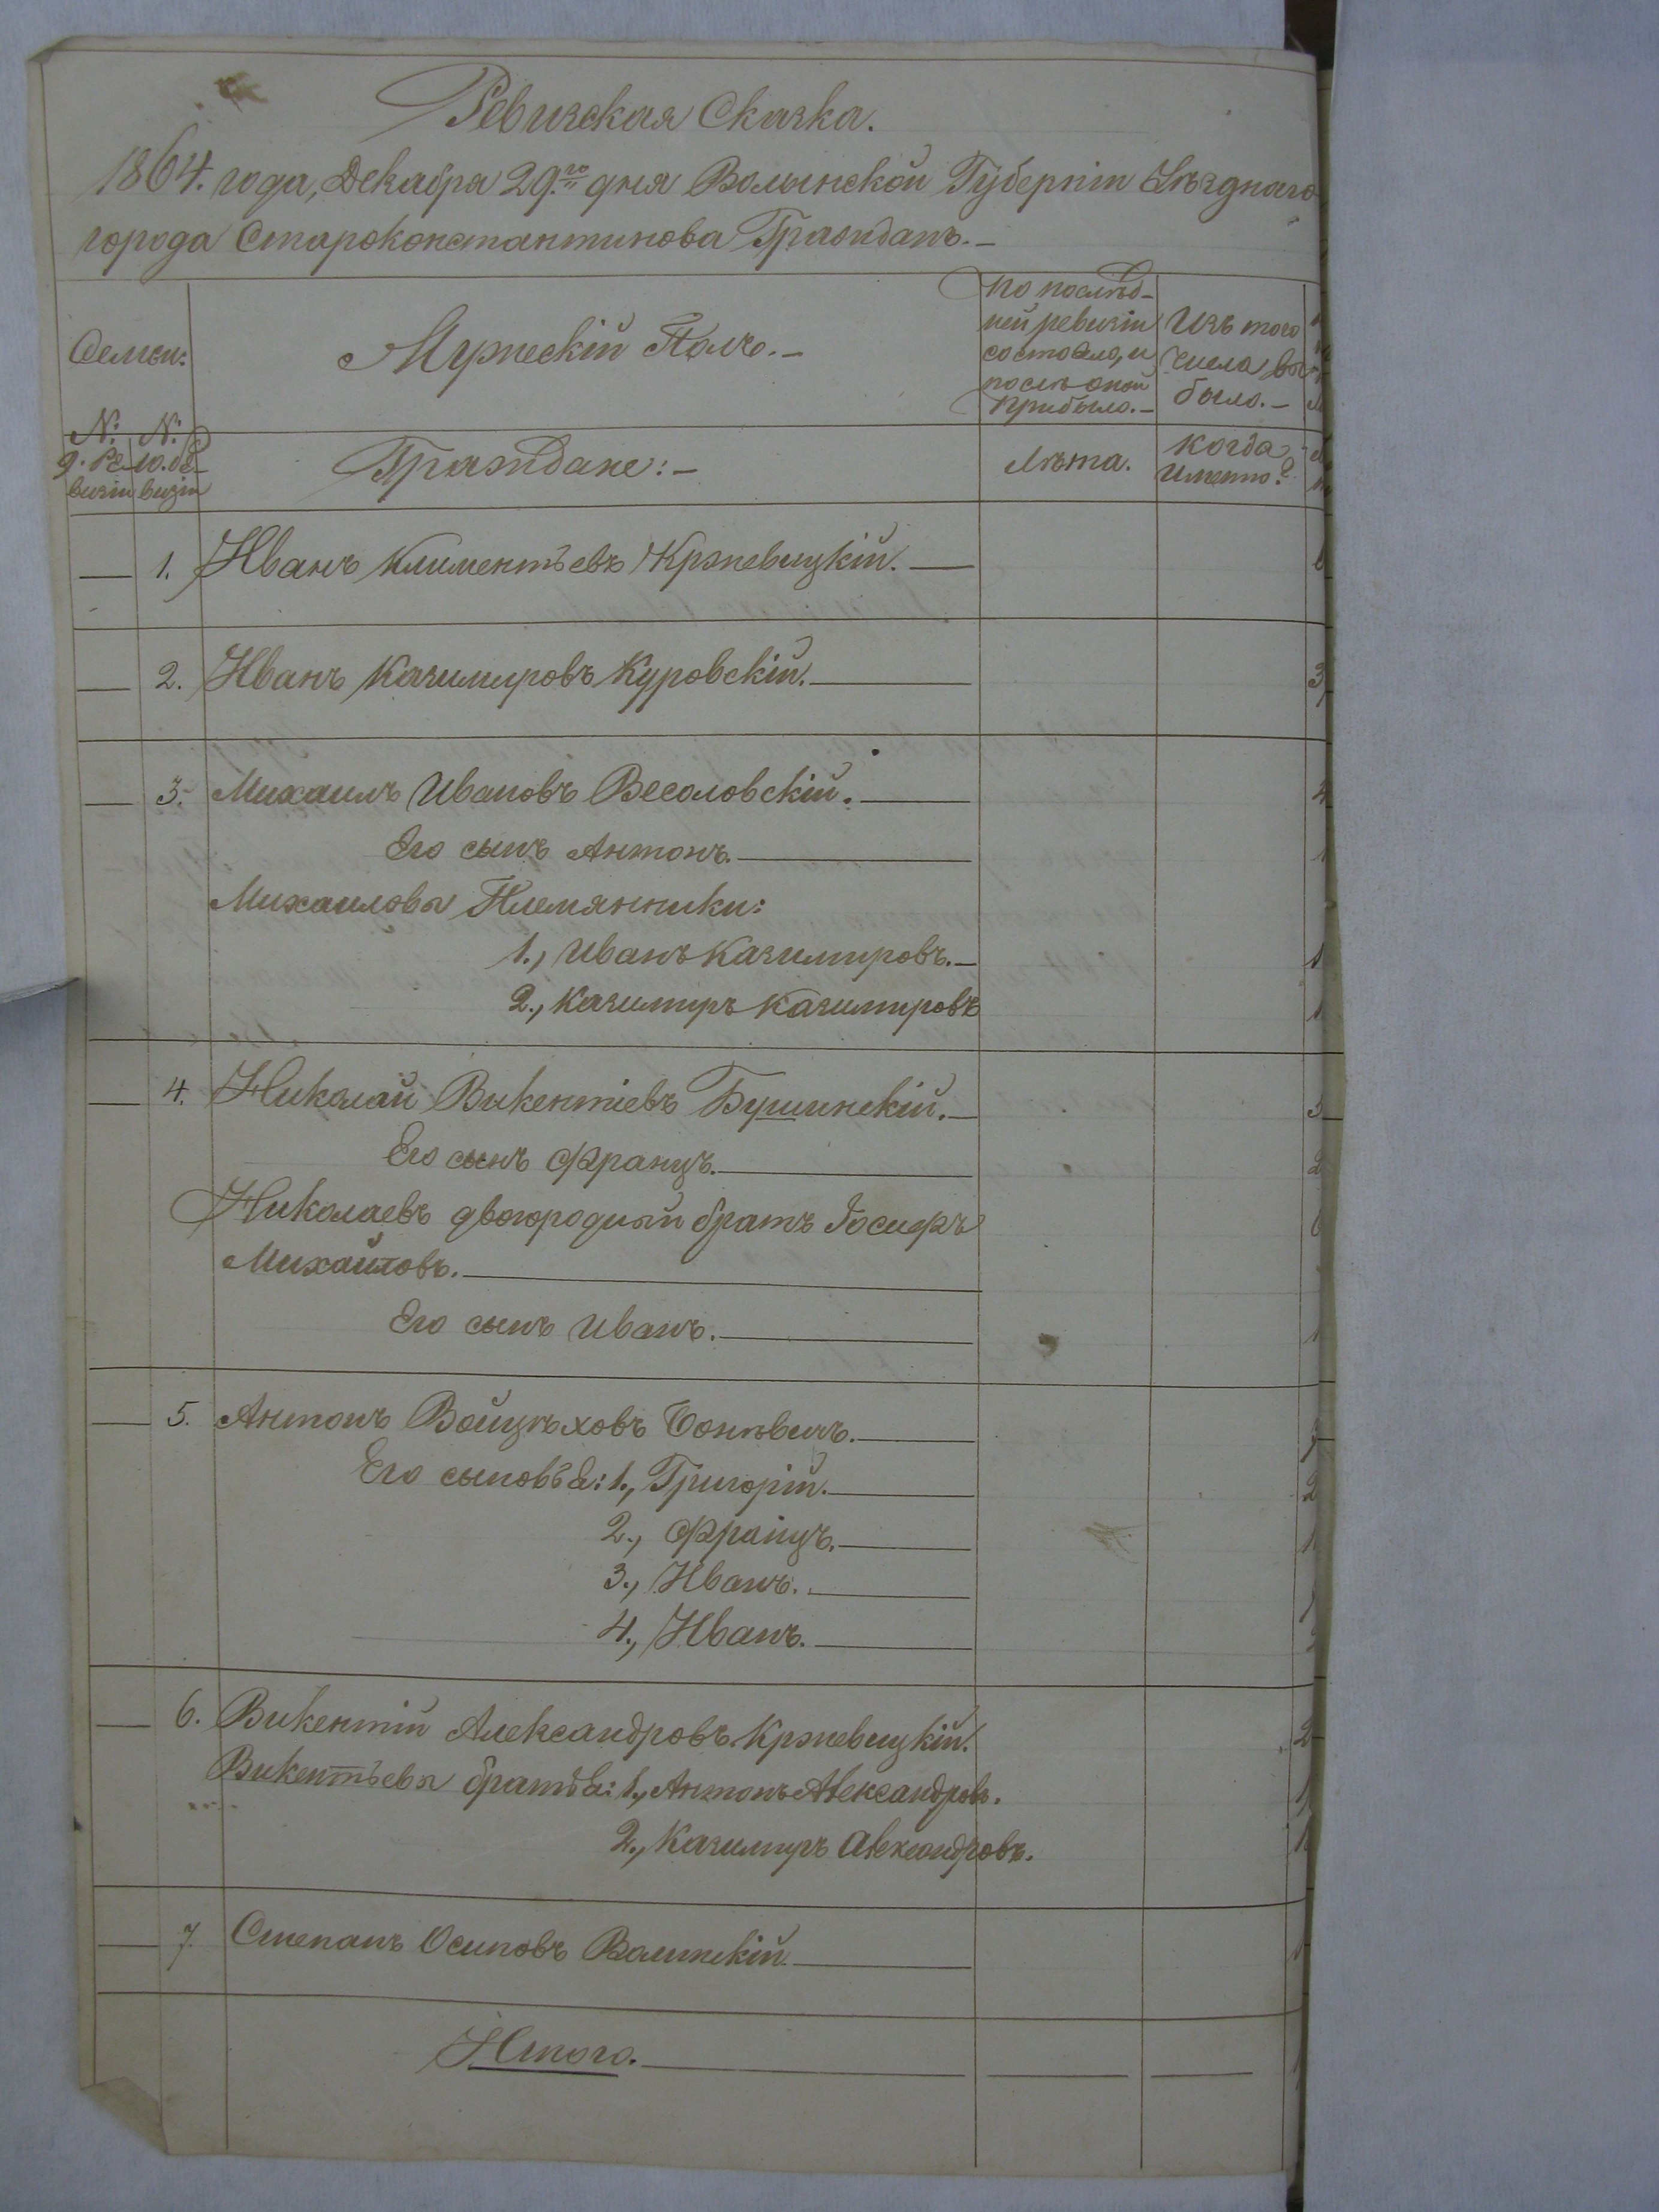 Ревизская Сказка.
1864. года, Декабря 29.го дня Волынской Губерніи Уѣзднаго
города Староконстантинова Гражданъ.—
Семьи:
Мужескій Полъ.—
По послѣд-
ней ревизіи
состояло, и
послѣ оной
прибыло.—
Изъ того
числа вы
было.—
№: №:
9. Ре- 10. Ре-
визіи визіи
Граждане:—
Лѣта.
Когда
именно?
— 1. Иванъ Климентьевъ Кржевицкій. —
— 2. Иванъ Казимировъ Куровскій. —
— 3. Михаилъ Ивановъ Весоловскій. —
Его сынъ Антонъ. —
Михаиловы Племянники:
1., Иванъ Казимировъ. —
2., Казимиръ Казимировъ
— 4. Николай Викентіевъ Бушинскій. —
Его сынъ Францъ. —
Николаевъ двоюродный братъ Іосифъ
Михайловъ. —
Его сынъ Иванъ. —
— 5. Антонъ Войцѣховъ —
Его сыновья: 1., Григорій. —
2., Францъ. —
3., Иванъ. —
4., Иванъ. —
— 6. Викентій Александровъ Кржевицкій.
Викентьевы братья: 1., Антонъ Александровъ.
2., Казимиръ Александровъ.
— 7. Степанъ Осиповъ —
Итого. —